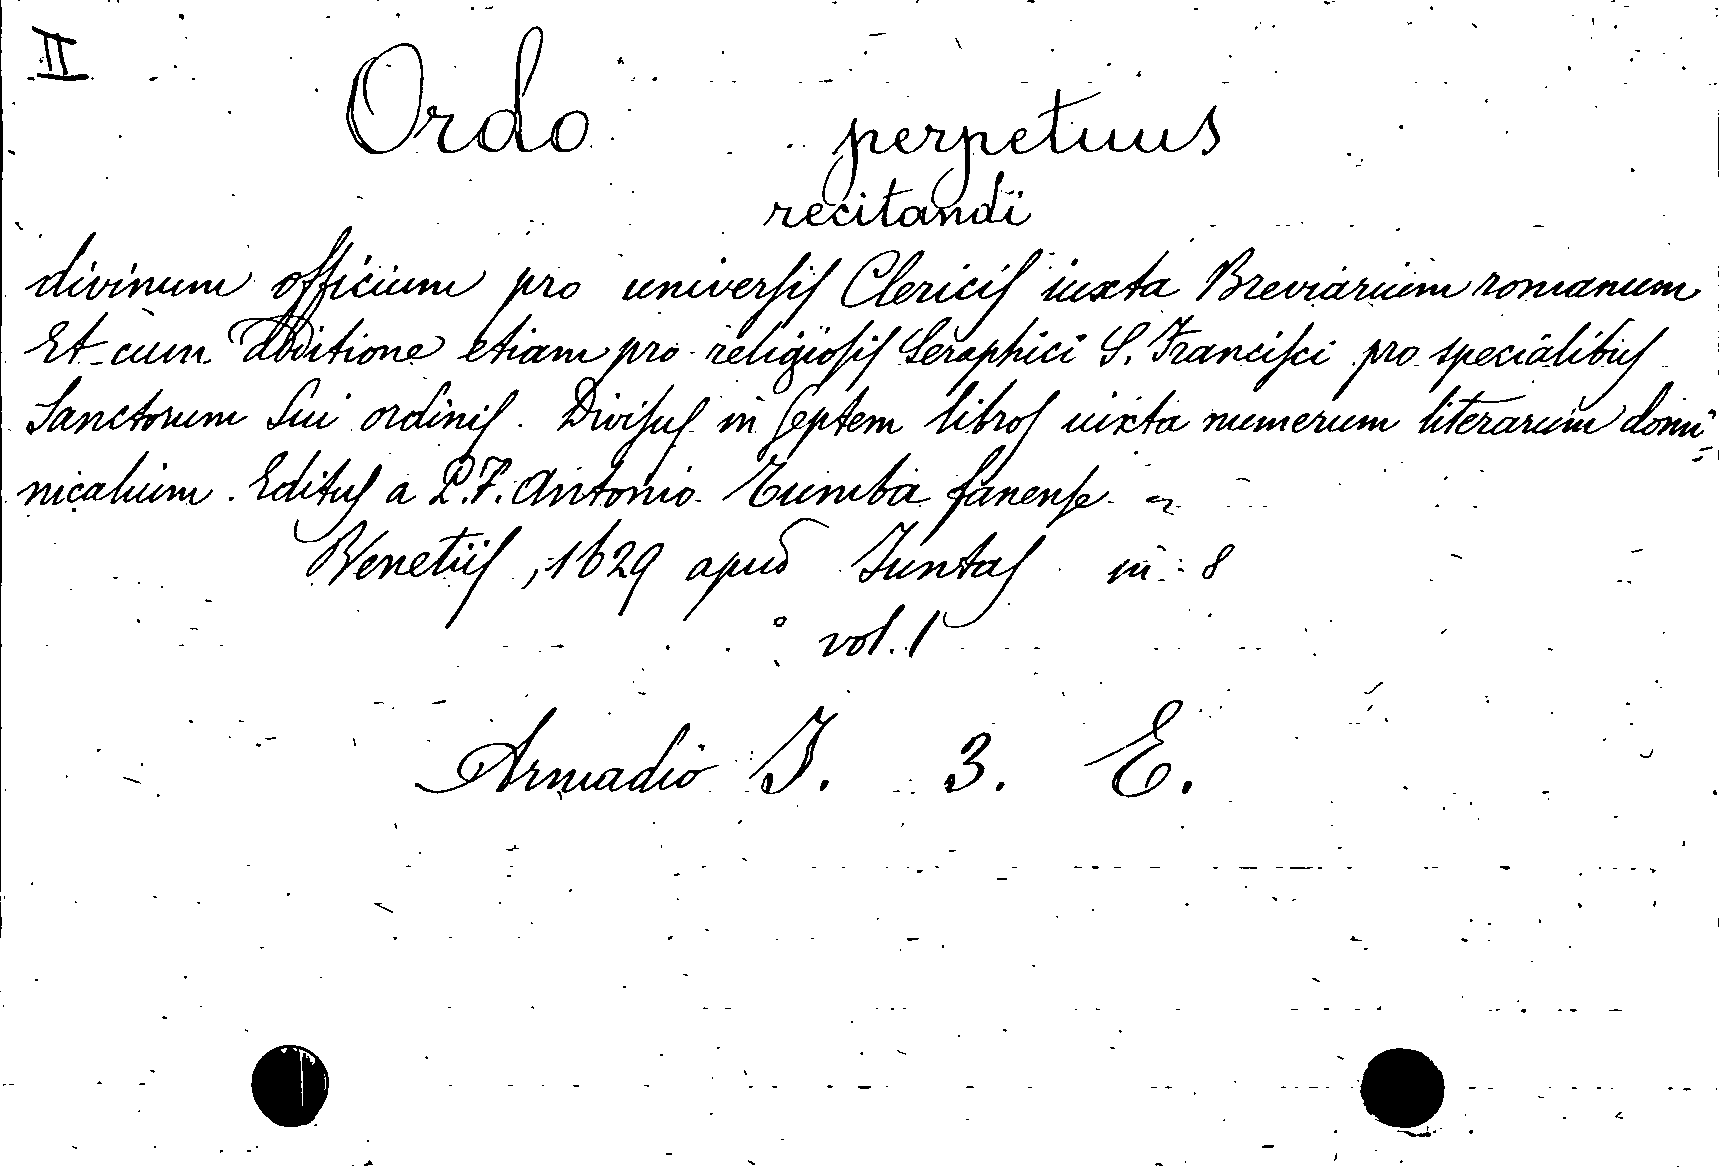 II
Ordo perpetuus
recitandi
divinum officium pro universis Clericis iuxta Breviarium romanum
Et cum additione etiam pro religiosis Seraphici S. Francisci pro specialibus
Sanctorum Sui ordinis. Divisus in septem libros iuxta numerum literarum domi=
nicalium. Editus a P.F. Antonio Tumba fanense
Venetiis, 1629 apud Juntas in 8°
vol. 1
Armadio I. 3. E.